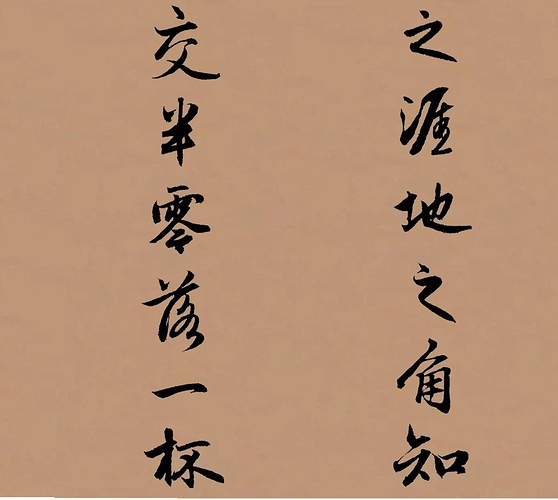 之涯地之角知
交半零落一杯